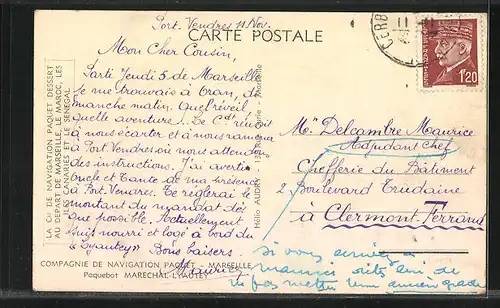 Port Vendres 11 Nov.
CARTE POSTALE
CERB
1F20
Mon Cher Cousin,
Parti Jeudi 5 de Marseille
je me trouvais à Oran, di-
manche matin. Quel réveil
quelle aventure! Le Cdt réussit
à nous écarter et à nous ramener
à Port Vendres où nous attendons
des instructions. J'ai averti
Oncle et Tante de ma présence
à Port-Vendres. Je règlerai le
montant du mandat dès
que possible. Actuellement
suis nourri et logé à bord du
"Lyautey" Bons baisers.
Maurice
LA CIE DE NAVIGATION PAQUET DESSERT
AU DÉPART DE MARSEILLE, LE MAROC, LES
ILES CANARIES ET LE SÉNÉGAL
Hélio AUDRY
COMPAGNIE DE NAVIGATION PAQUET - MARSEILLE
Paquebot MARÉCHAL LYAUTEY
Mr Delcambre Maurice
Adjudant Chef
Chefferie du Bâtiment
2, Boulevard Trudaine
à Clermont Ferrand
si vous